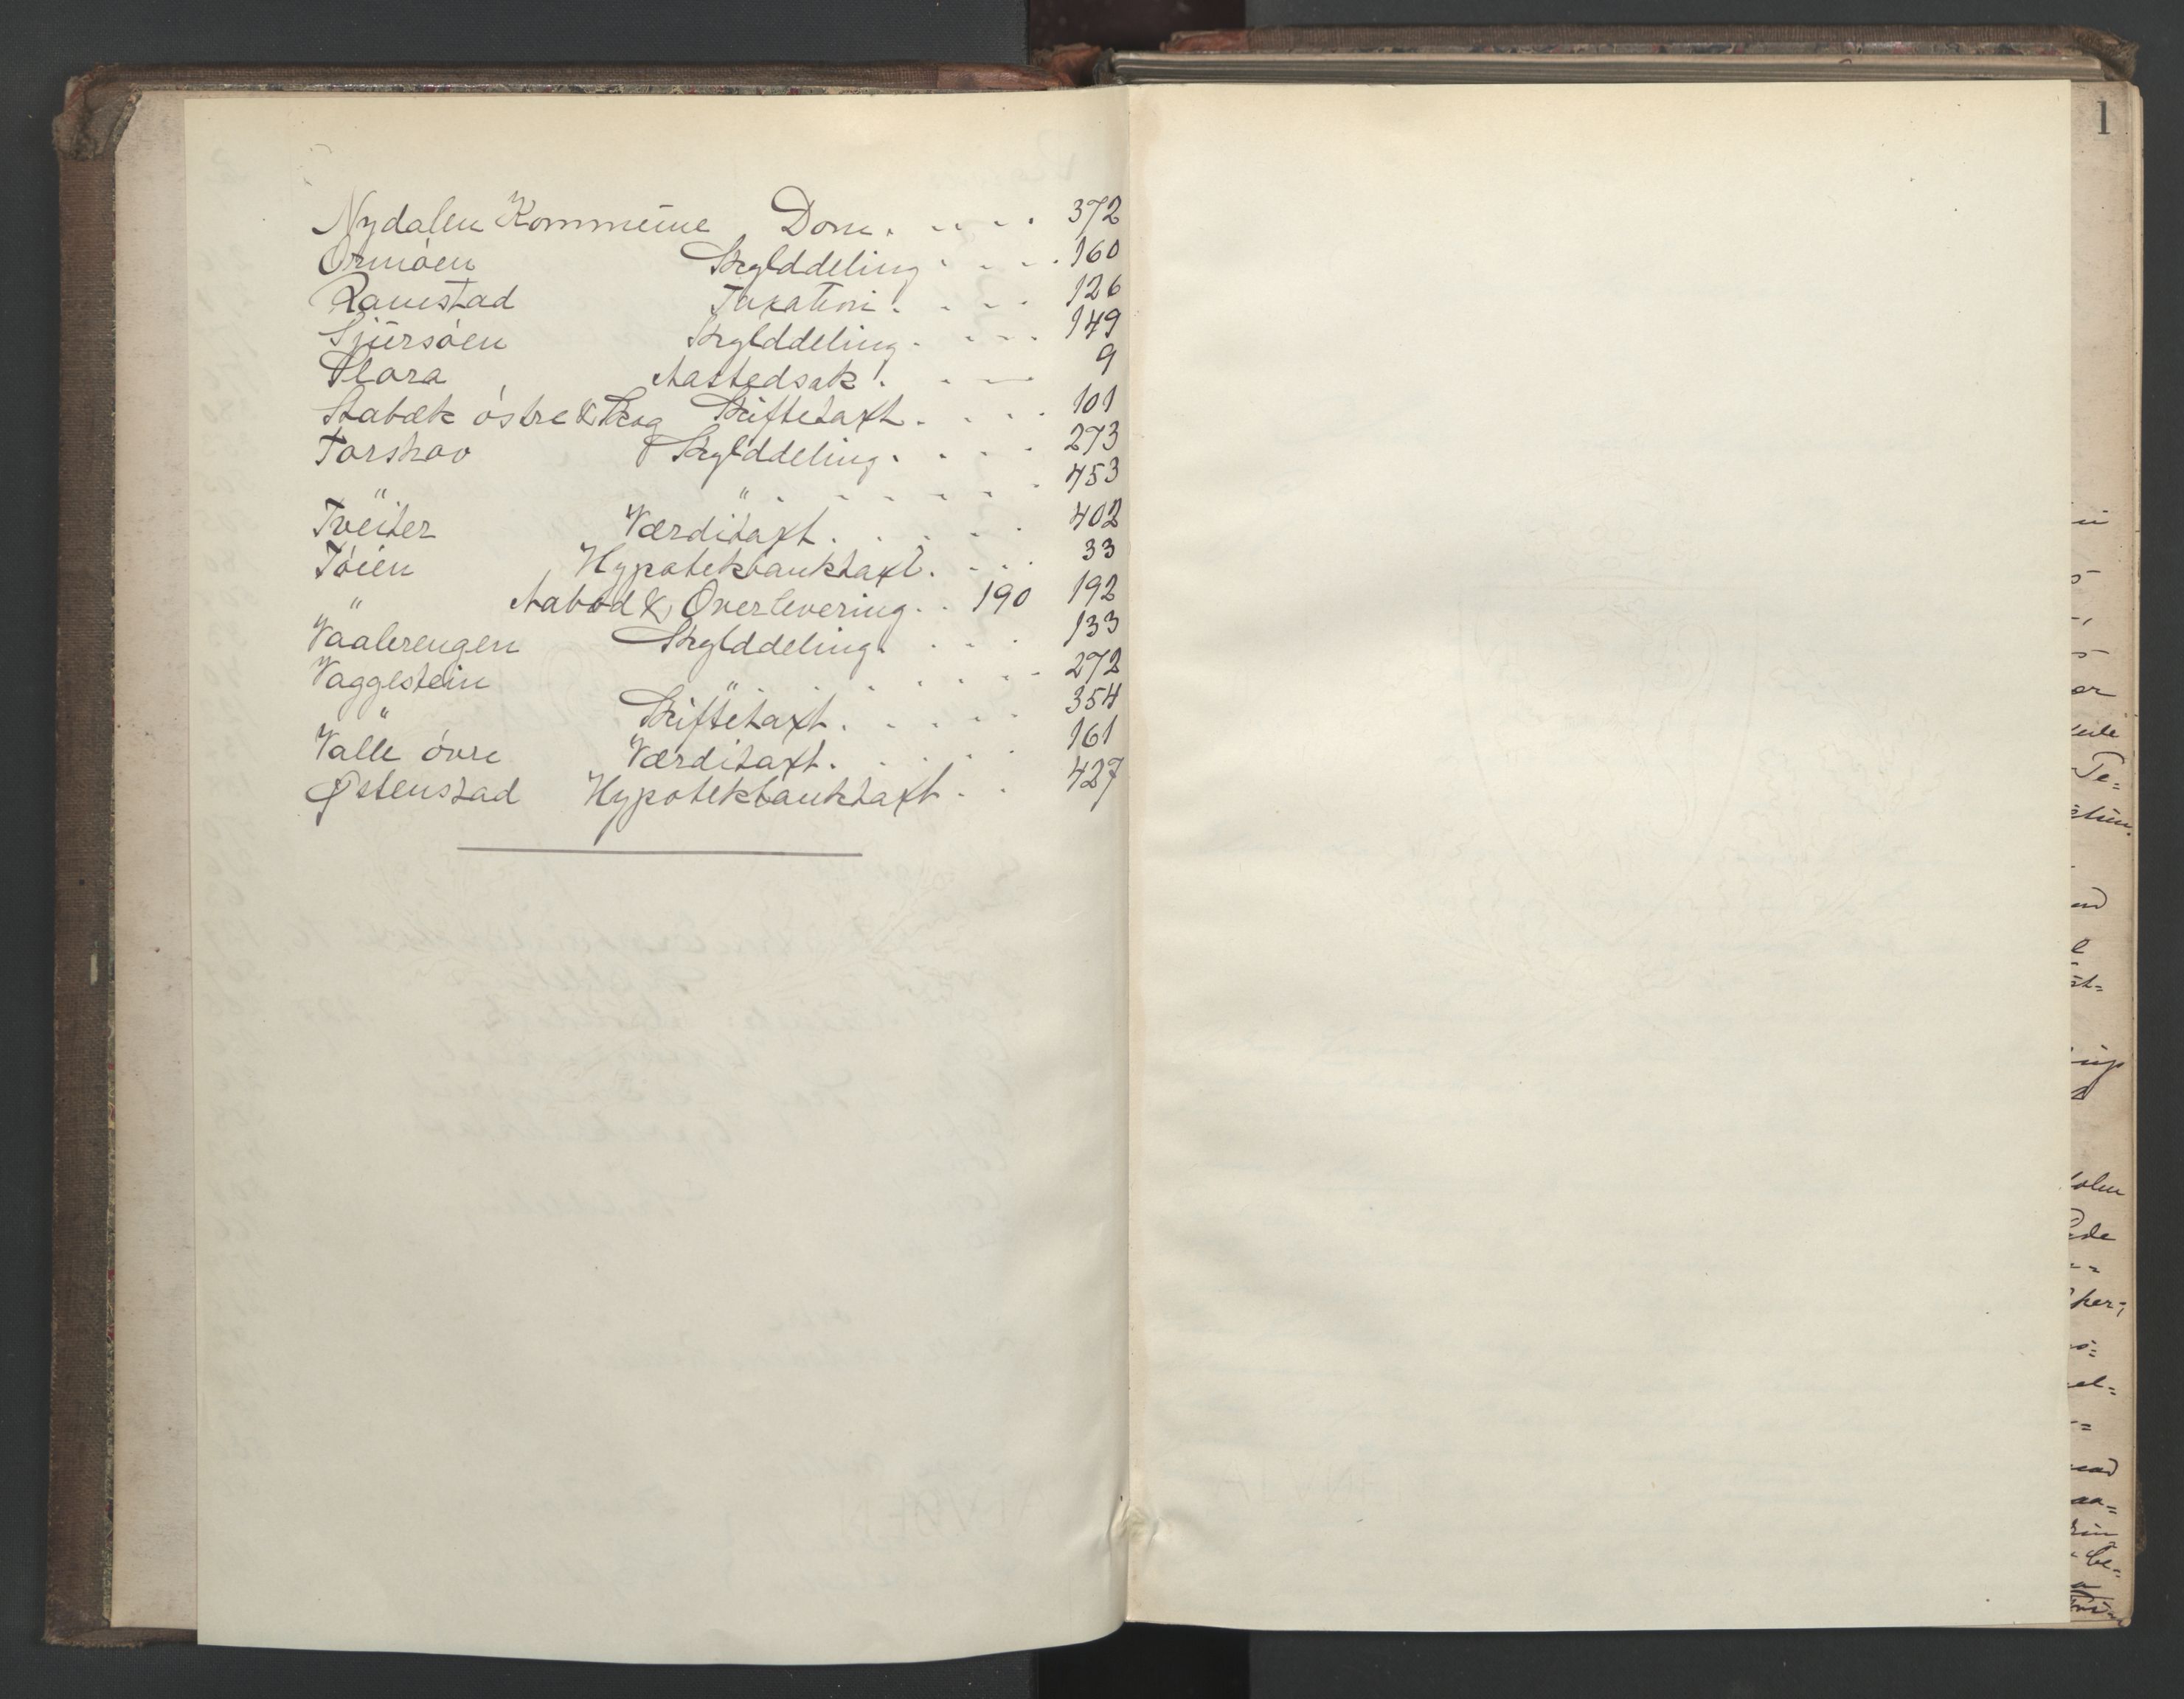 Nydalen Kommune Dom. . . . . 372
Ormöen Skylddeling . . . . 160
Ramstad Taxation . . . . 126
Sjursöen Skylddeling . . . . 149
Slora Aastedsak . . . 9
Stabæk östre & Skog Skiftetaxt . . . . 101
Torshov Skylddeling . . . . 273
" " . . . . . . . 453
Tveiter Værditaxt . . . . . 402
Töien Hypotekbanktaxt . . . . 33
" Aabod & Overlevering . . 190 192
Vaalerengen Skylddeling . . . . 133
Vaggestein " . . . . . . 272
" Skiftetaxt . . . . . 354
Valle övre Værditaxt . . . . . 161
Østenstad Hypotekbanktaxt . . 427
1